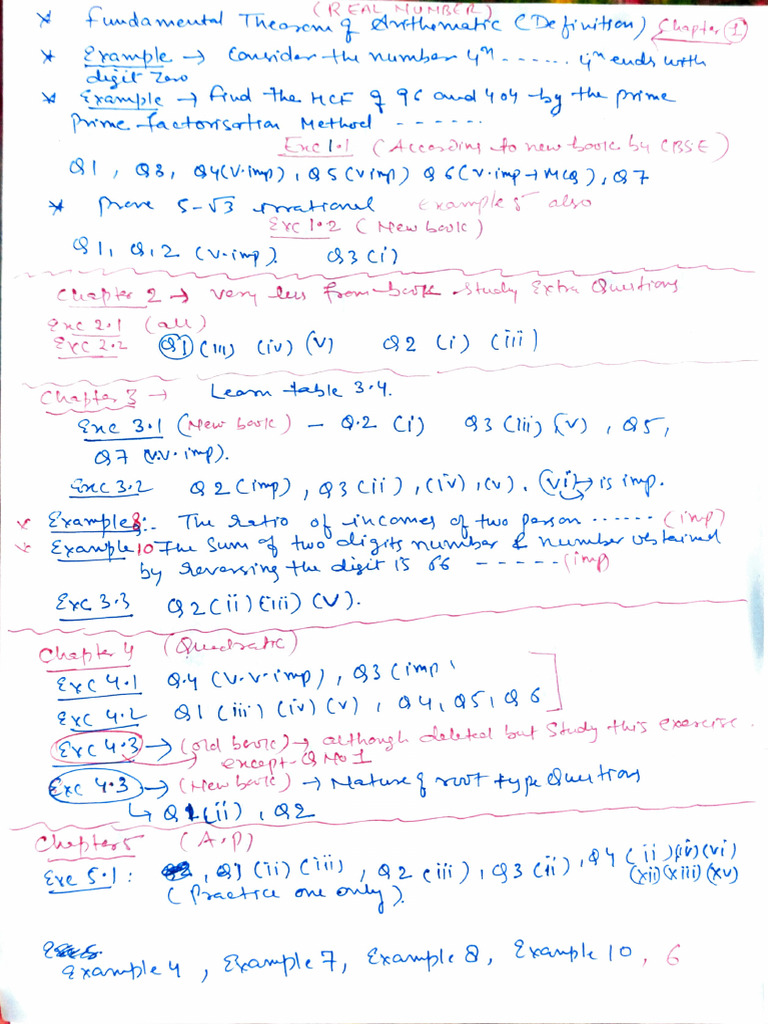 (REAL NUMBER)
* Fundamental Theorem of Arithmetic (Definition) Chapter 1
* Example → Consider the number 4ⁿ ...... 4ⁿ ends with
digit Zero
* Example → Find the HCF of 96 and 404 by the prime
Prime-factorisation Method ------
Exc 1.1 (According to new book by CBSE)
Q1, Q3, Q4(V.imp), Q5(Vimp) Q6(V.imp→MCQ), Q7
* Prove 5-√3 irrational Example 5 also
Exc 1.2 (New book)
Q1, Q.2 (V.imp). Q3(i)
Chapter 2 → Very less from book Study Extra Questions
Exc 2.1 (all)
Exc 2.2 Q1 (iii) (iv) (v) Q2 (i) (iii)
Chapter 3 → Learn table 3.4.
Exc 3.1 (New book) - Q.2 (i) Q3(iii)(v), Q5,
Q7 (V.V.imp).
Exc 3.2 Q2(imp), Q3(ii), (iv), (v). (vi)→ is imp.
* Example 8:- The ratio of incomes of two person ...... (imp)
* Example 10 The Sum of two digits number & number obtained
by reversing the digit is 66 ----- (imp)
Exc 3.3 Q2(ii)(iii)(V).
Chapter 4 (Quadratic)
Exc 4.1 Q.4 (V.V.imp), Q3(imp)
Exc 4.2 Q1(iii)(iv)(v), Q4, Q5, Q6
Exc 4.3 → (old book) → although deleted but Study this exercise.
except Q No 1
Exc 4.3 → (New book) → Nature of root type Questions
↳ Q1(ii), Q2
Chapter 5 (A.P)
Exc 5.1: , Q3 (ii) (iii), Q2 (iii), Q3(ii), Q4 (ii)(iv)(vi)
(xii)(xiii)(xv)
(Practice one only).
Example 4, Example 7, Example 8, Example 10, 6